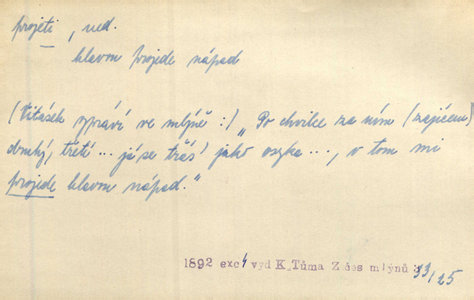 projeti, ned.
hlavou projede nápad
(Vitásek vypráví ve mlýně:) „Po chvilce za ním (zajícem)
druhý, třetí ... já se třás' jako osyka ..., v tom mi
projede hlavou nápad."
1892 exc 4 vyd K. Tůma Z čes mlýnů 33/25